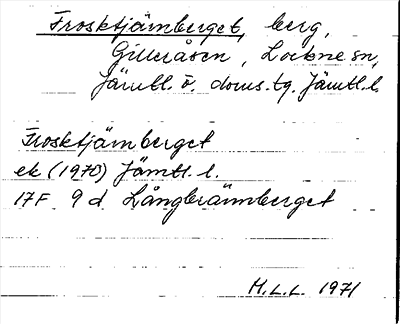 Frosktjärnberget, berg,
Gilleråsen, Lockne sn,
Jämtl. ö. doms. tg. Jämtl. l.
Frosktjärnberget
ek (1970) Jämtl. l.
17F 9d Långbrännberget
H.L.L. 1971